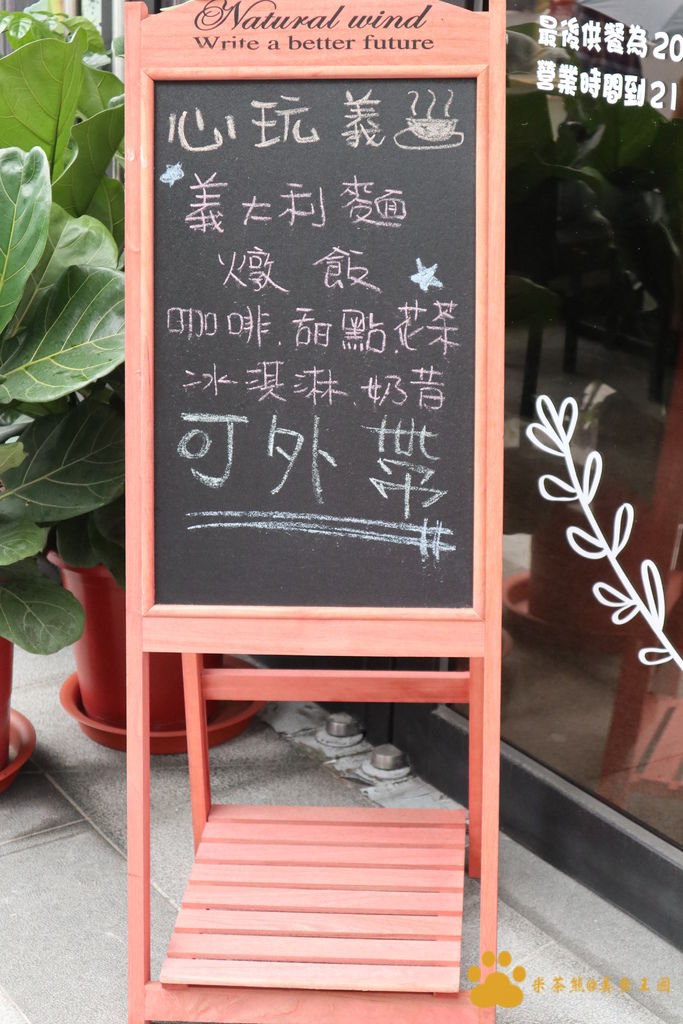 Natural wind
Write a better future
心玩義
義大利麵
燉飯
咖啡.甜點.花茶
冰淇淋.奶昔
可外帶
最後供餐為20
營業時間到21
米茶熊@美食王國